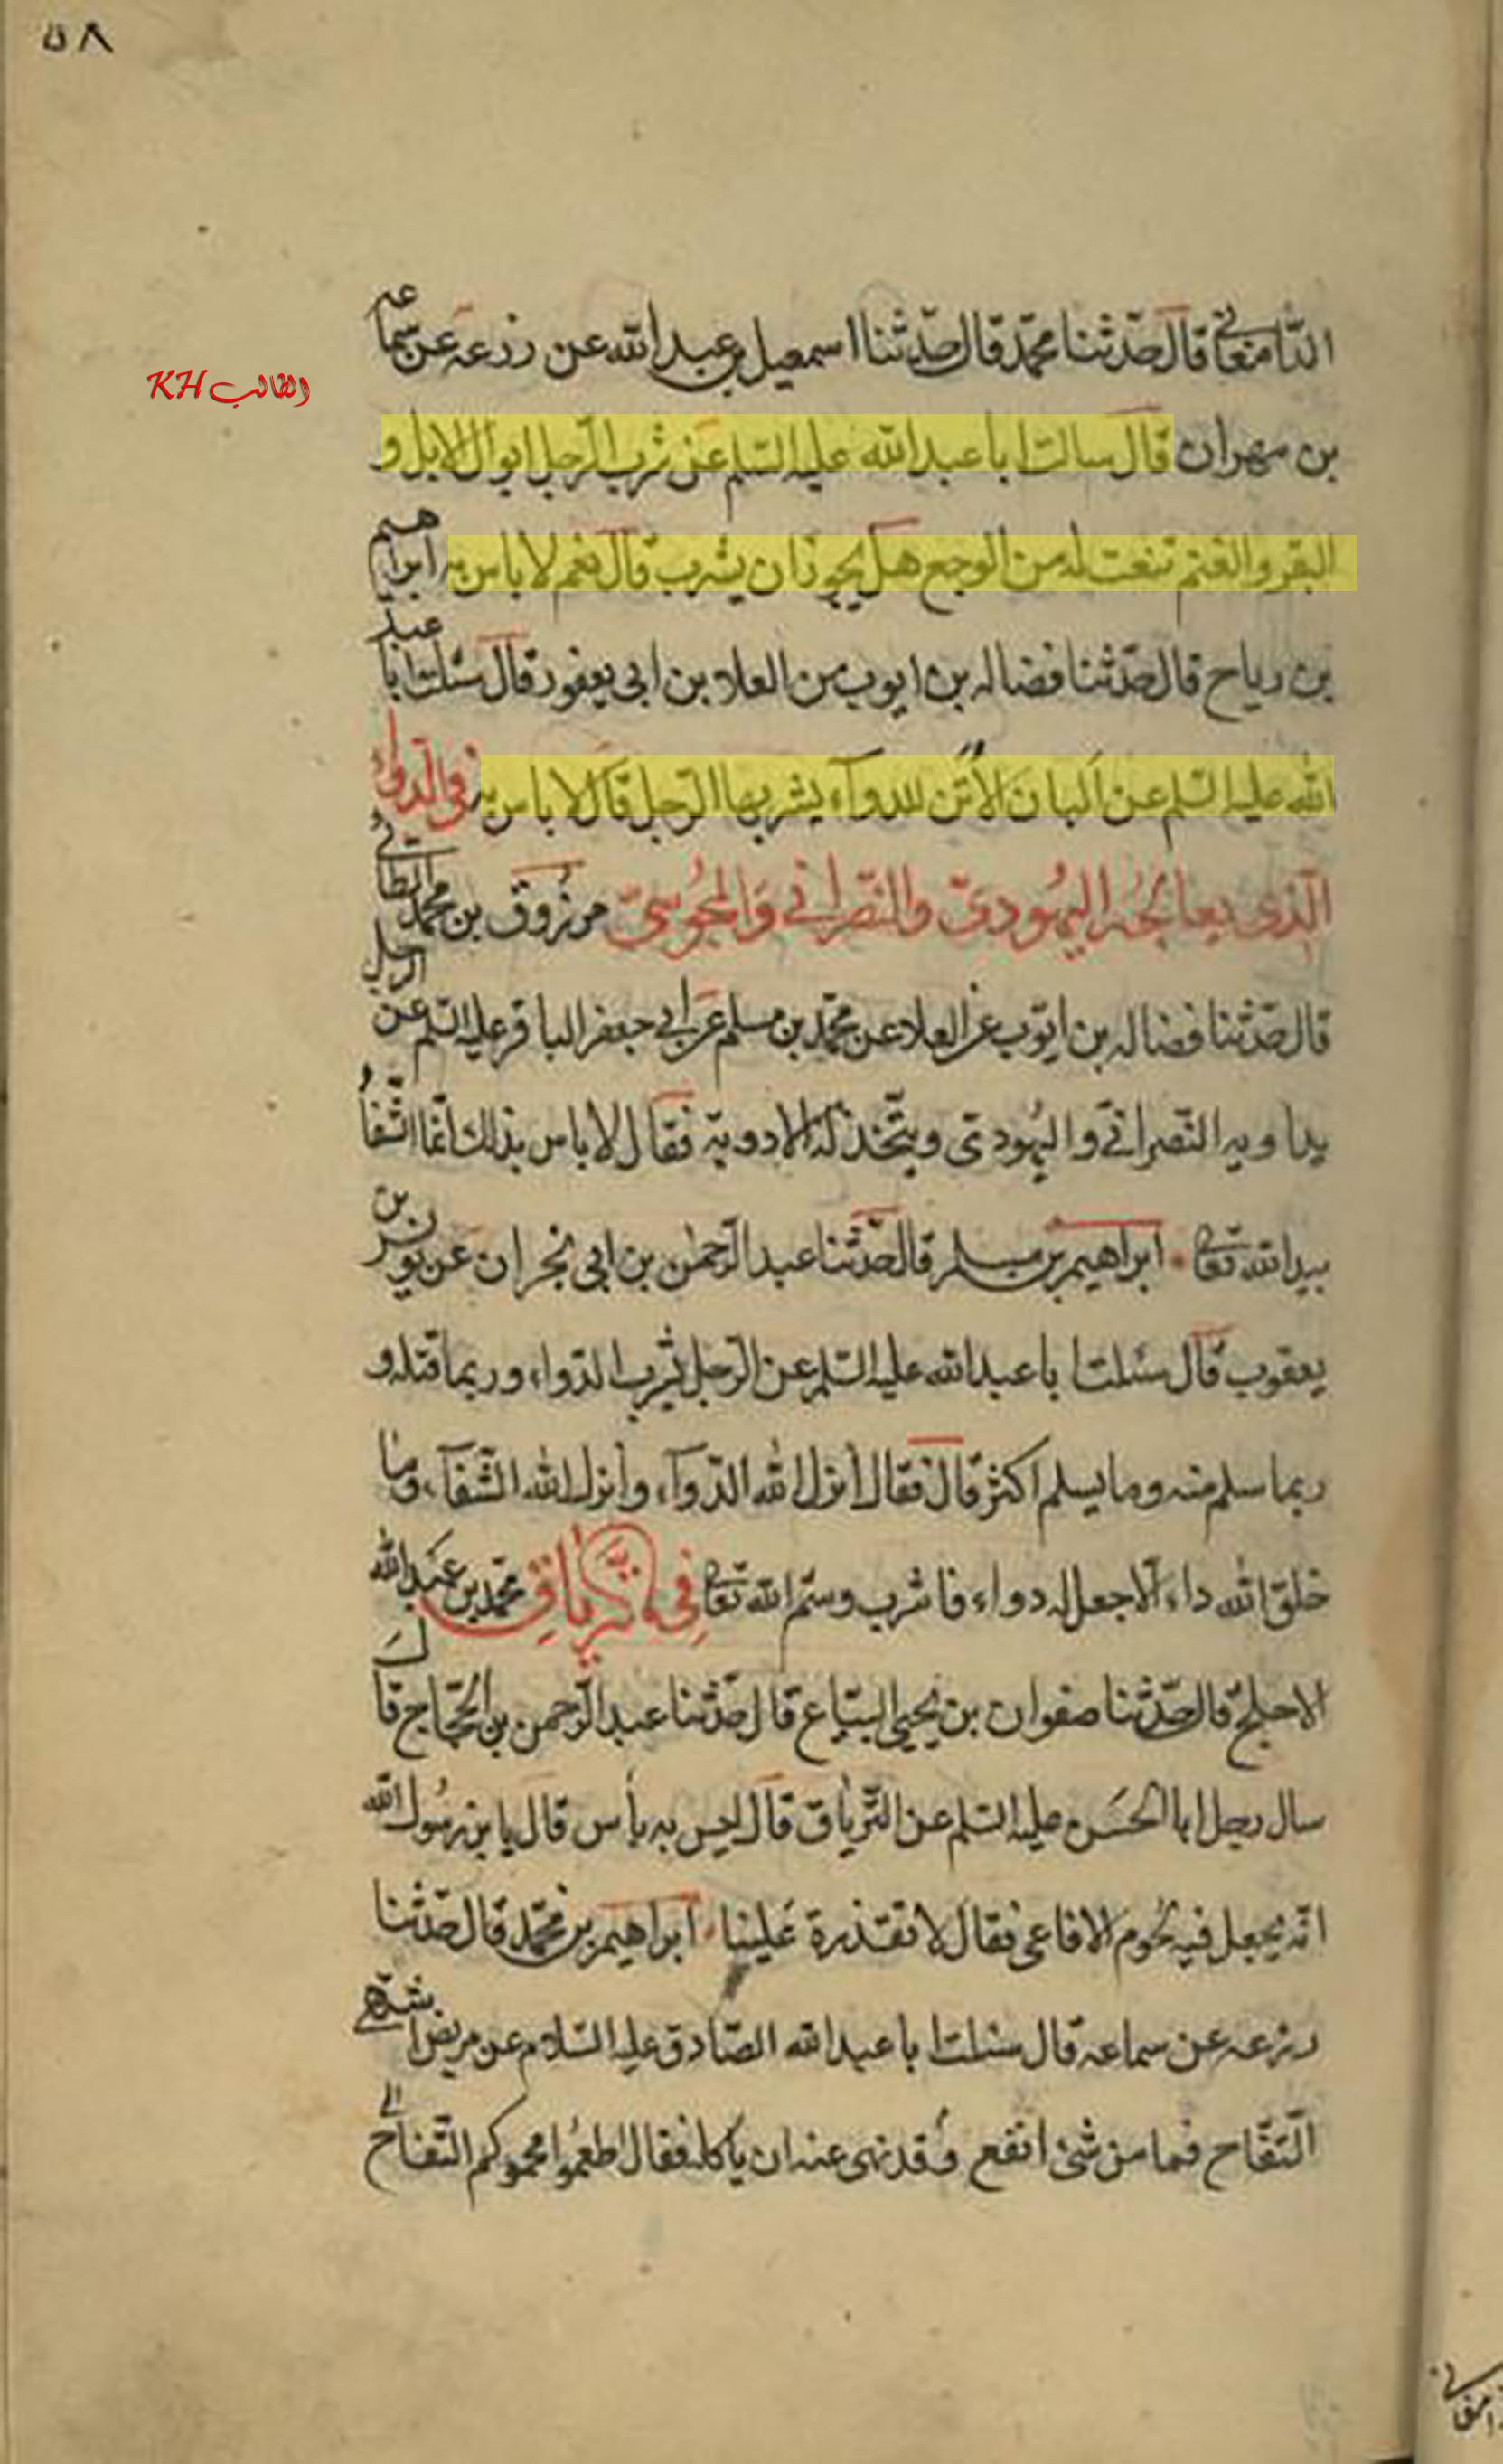 ٥٨
الدّامغاني قال حدّثنا محمّد قال حدّثنا اسمعيل بن عبد الله عن زرعه عن سماعه
الطالب KH
بن مهران قال سالت ابا عبد الله عليه السّلم عن شرب الرّجل ابوال الابل و
البقر والغنم تنعت له من الوجع هل يجوز ان يشرب قال نعم لا باس به ابراهيم
بن رياح قال حدّثنا فضاله بن ايوب عن العلا بن ابى يعفور قال سئلت ابا عبد
الله عليه السّلم عن اَلبان الاُتن للدوآء يشربها الرّجل قال لا باس به في الدّوآء
الّذى يعالجه اليهُودىّ والنّصرانىّ وَالمجُوسىّ مرزُوق بن محمّد الطّائي
قال حدّثنا فضاله بن ايّوب عن العلا عن محمّد بن مسلم عن ابى جعفر الباقر عليه السّلم عن الرجل
يداويه النّصرانّى و اليهُودىّ ويتّخذ له الادوية فقال لا باس بذلك انّما الشّفآء
بيد الله تعالى ابراهيم بن مسلم قال حدّثنا عبد الرّحمٰن بن ابى نجران عن يونس بن
يعقوب قال سئلت ابا عبد الله عليه السّلم عن الرّجل يشرب الدّواء وربما قتله و
ربما سلم منه وما يسلم اكثر قال فقال أنزل الله الدّوآء وأنزل الله الشّفآء وما
خلق الله داء الّا جعل له دواء فاشرب وسمّ الله تعالى في التّرياق محمّد بن عبد الله
الاجلح قال حدّثنا صفوان بن يحيى البيّاع قال حدّثنا عبد الرّحمن بن الحجّاج قال
سال رجل ابا الحسَن عليه السّلم عن التّرياق قال ليس به بأس قال يا بن رسُول الله
انّه يجعل فيه لحُوم الافاعى فقال لا تقذره عَلينا ابراهيم بن محمّد قال حدّثنا
زرعه عن سماعه قال سئلت ابا عبد الله الصّادق عليه السّلام عن مريض اشتهى
التفّاح فما من شئ انفع وقد نهى عنه ان ياكله فقال اطعموا محموكم التّفاح